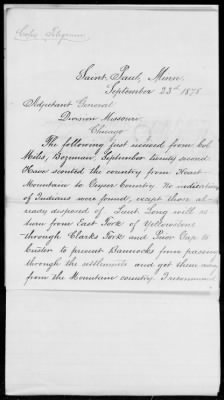 Copy Telegram
Saint Paul, Minn.
September 23d 1878
Adjutant General
Division Missouri
Chicago
The following just received from Col
Miles, Bozeman, September twenty second
Have scouted the country from Heart
Mountain to Geyser Country. No indications
of Indians were found, except those al-
ready disposed of Lieut Long will re
turn from East Fork of Yellowstone
through Clarks Fork and Pryor Gap to
Custer to prevent Bannocks from passing
through the settlements and get them away
from the Mountain country. I recommend